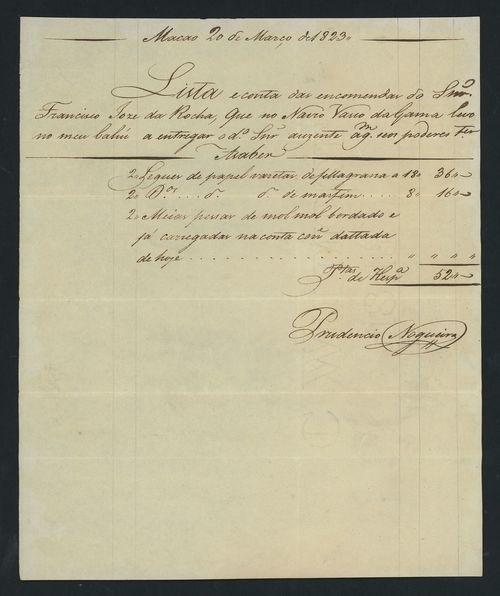 Macao 20 de Março de 1823,,
Lista e conta das encomendas do Snr.
Francisco Joze da Rocha, que no Navio Vasco da Gama levo
no meu bahú a entregar o d.º Snr auzente a q.m seos poderes ter
A saber
2,, Leques de papel varetas de fillagrana a 18,, 36,,
2,, D.os . . . . d.º d.º de marfim . . . . 8,, 16,,
2,, Meias pessas de mol mol bordado e
já carregadas na conta dattada
de hoje . . . . . . . . . . . . . . . . . . . ,, ,, ,, ,,
P.tas de Hesp.a 52,,
Prudencio Nogueira